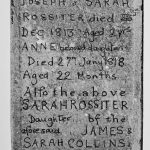 JOSEPH & SARAH
ROSSITER died
Dec. 1813 Aged 2
ANNE second daughter
Died 27th Jany 1818
Aged 22 Months
Also the above
SARAH ROSSITER
Daughter of the
aforesaid JAMES &
SARAH COLLINS